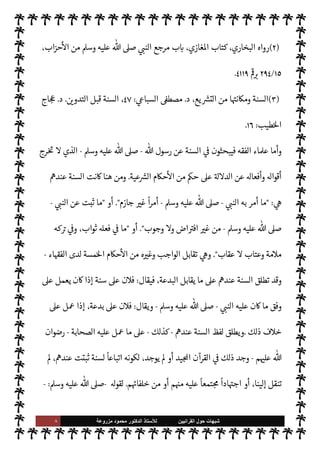 (٢)رواه البخاري,كتاب المغازي, باب مرجع النبي صلى الله عليه وسلم من الأحزاب,
٢٩٤/١٥ برقم ٤١١٩.
(٣)السنة ومكانتها من التشريع, د. مصطفى السباعي: ٤٧, السنة قبل التدوين. د. عجاج
الخطيب: ١٦.
وأما علماء الفقه فيبحثون في السنة عن رسول الله - صلى الله عليه وسلم - الذي لا تخرج
أقواله وأفعاله عن الدلالة على حكم من الأحكام الشرعية. ومن هنا كانت السنة عندهم
هي: "ما أمر به النبي - صلى الله عليه وسلم - أمراً غير جازم". أو "ما ثبت عن النبي -
صلى الله عليه وسلم - من غير افتراض ولا وجوب". أو "ما في فعله ثواب, وفي تركه
ملامة وعتاب لا عقاب". وهي تقابل الواجب وغيره من الأحكام الخمسة لدى الفقهاء .
وقد تطلق السنة عندهم على ما يقابل البدعة, فيقال: فلان على سنة إذا كان يعمل على
وفق ما كان عليه النبي - صلى الله عليه وسلم - ويقال: فلان على بدعة, إذا عمل على
خلاف ذلك .ويطلق لفظ السنة عندهم -كذلك - على ما عمل عليه الصحابة - رضوان
الله عليهم - وجد ذلك في القرآن المجيد أو لم يوجد, لكونه اتباعاً لسنة ثبتت عندهم, لم
تنقل إلينا, أو اجتهاداً مجتمعاً عليه منهم أو من خلفائهم, لقوله -صلى الله عليه وسلم: -
شبهات حول القرآنيين للأستاذ الدكتور محمود مزروعة ٨